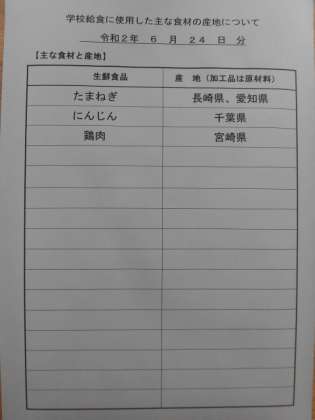 学校給食に使用した主な食材の産地について
令和2年 6 月 24 日 分
【主な食材と産地】
生鮮食品 産 地（加工品は原材料）
たまねぎ 長崎県、愛知県
にんじん 千葉県
鶏肉 宮崎県